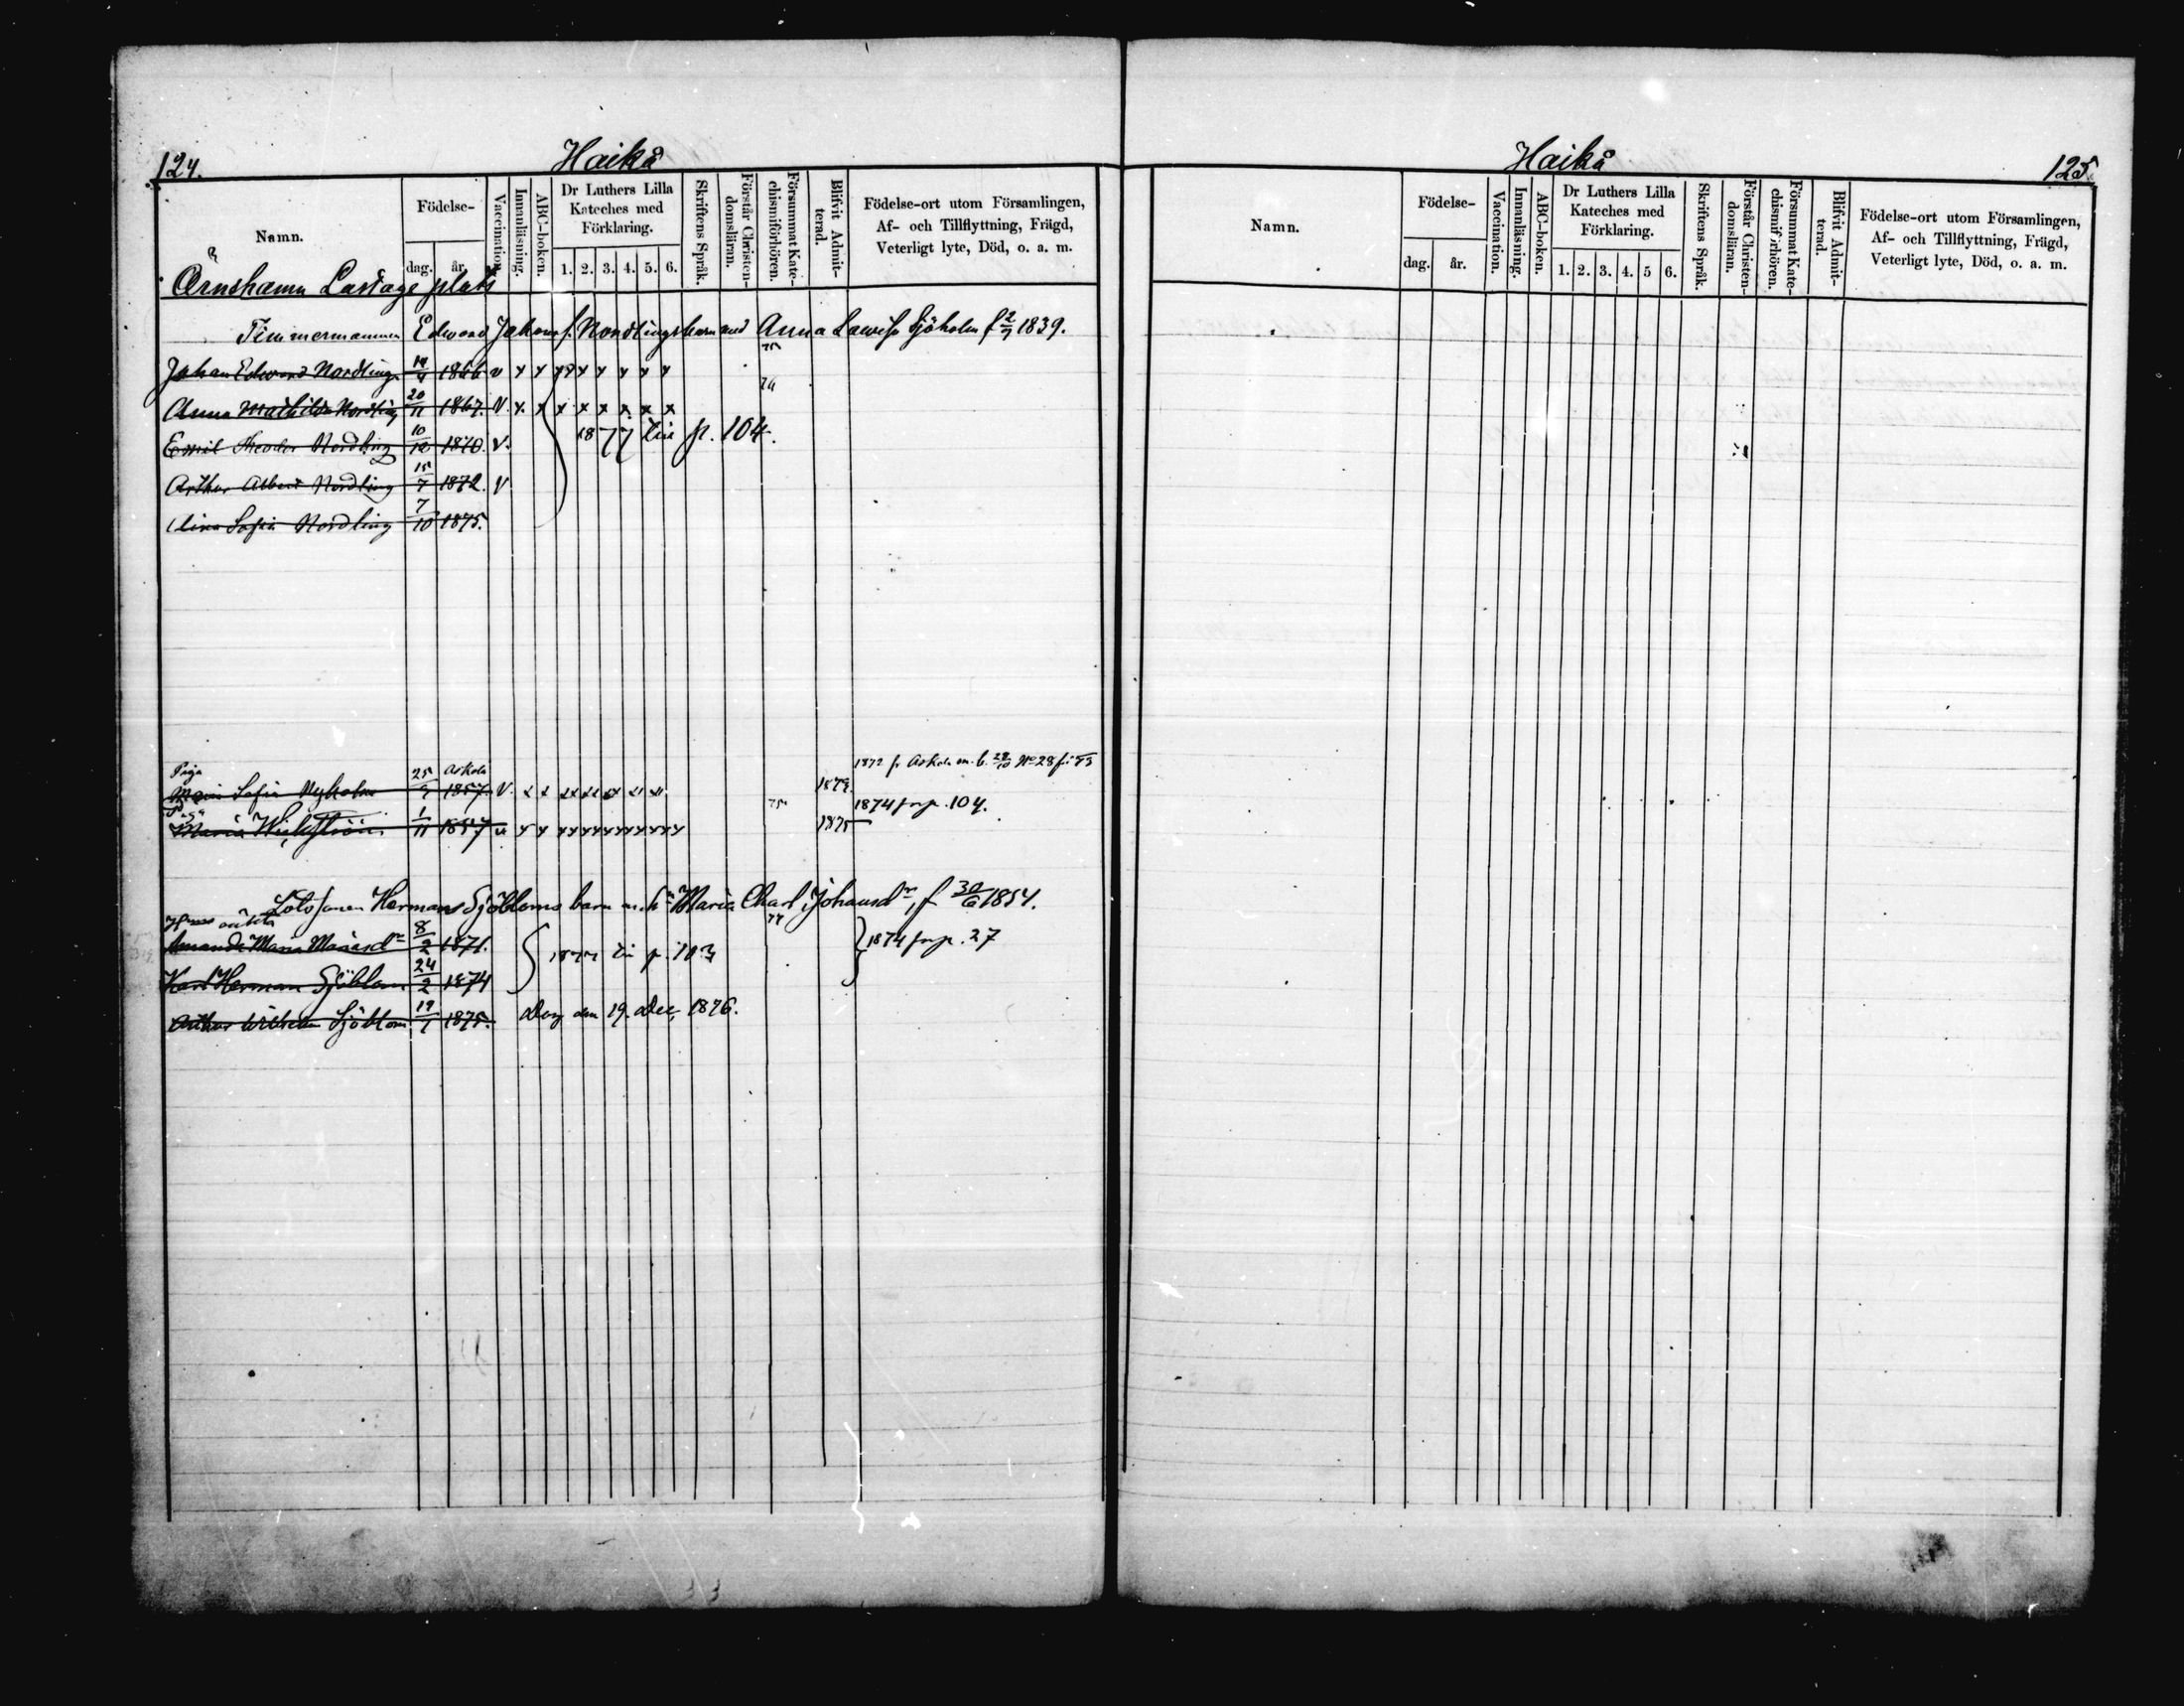 124.
Haikå
Namn.
Födelse-
dag.
år.
Vaccination.
Innanläsning.
ABC-boken.
Dr Luthers Lilla
Kateches med
Förklaring.
1. 2. 3. 4. 5. 6.
Skriftens Språk.
Förstår Christen-
domsläran.
Försummat Kate-
chismiförhören.
Blifvit Admit-
terad.
Födelse-ort utom Församlingen,
Af- och Tillflyttning, Frägd,
Veterligt lyte, Död, o. a. m.
Lastage plats
Timmermannen Edward Nordlings barn Anna Lawisa Sjöholm f 2/7 1839.
75
Johan Edward Nordling 14/4 1866 v x x x x x x x x
74
Anna Mathilda Nordling 20/11 1867. V. x x x x x x x x
Emil Theodor Nordling 10/12 1870. V. 1877 till p. 104.
Arthur Albert Nordling 15/7 1872. V
Sofia Nordling 7/10 1875.
Piga
Maria Sofia Nyholm 25/3 Askola 1857. V. x x x x x x x x 1873 1872 fr Askola m. b. No 28
Piga
Maria 1/11 1857 v x x x x x x x x 75 1875 1874 fr p. 104.
Herman Sjöbloms barn m. h. Maria Charl. Johansdr, f 30/6 1854.
77
Amanda Maria 8/2 1871. 1877 till p. 103 1874 fr p. 27
Karl Herman Sjöblom 24/2 1874
Arthur Wilhelm Sjöblom 19/1 1875. Dog den 19. Dec. 1876.
Haikå
125
Namn.
Födelse-
dag.
år.
Vaccination.
Innanläsning.
ABC-boken.
Dr Luthers Lilla
Kateches med
Förklaring.
1. 2. 3. 4. 5 6.
Skriftens Språk.
Förstår Christen-
domsläran.
Försummat Kate-
chismiförhören.
Blifvit Admit-
terad.
Födelse-ort utom Församlingen,
Af- och Tillflyttning, Frägd,
Veterligt lyte, Död, o. a. m.